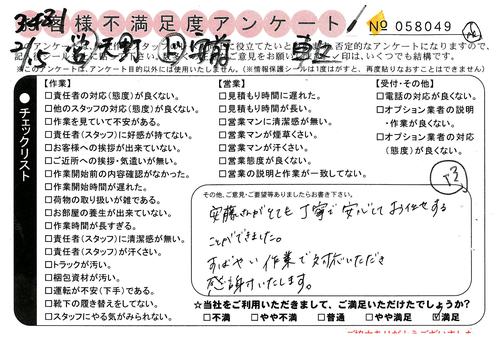 お客様不満足度アンケート
No 058049
※このアンケートは、アンケート目的以外には使用いたしません。(※情報保護シールは1度はがすと、再度貼りなおすことはできません)
●チェックリスト
【作業】
□責任者の対応(態度)が良くない。
□他のスタッフの対応(態度)が良くない。
□作業を見ていて不安がある。
□責任者(スタッフ)に好感が持てない。
□お客様への挨拶が出来ていない。
□ご近所への挨拶・気遣いが無い。
□作業開始前の内容確認がなかった。
□作業開始時間が遅れた。
□荷物の取り扱いが雑である。
□お部屋の養生が出来ていない。
□作業時間が長すぎる。
□責任者(スタッフ)に清潔感が無い。
□責任者(スタッフ)が汗くさい。
□トラックが汚い。
□梱包資材が汚い。
□運転が不安(下手)である。
□靴下の履き替えをしてない。
□スタッフにやる気がみられない。
【営業】
□見積もり時間に遅れた。
□見積もり時間が長い。
□営業マンに清潔感が無い。
□営業マンが煙草くさい。
□営業マンが汗くさい。
□営業態度が良くない。
□営業の説明と作業が一致してない。
【受付・その他】
□電話の対応が良くない。
□オプション業者の説明
・作業が良くない。
□オプション業者の対応
(態度)が良くない。
その他、ご意見・ご要望等ありましたらお書き下さい。
安藤さんがとても丁寧で安心してお任せする
ことができました。
すばやい作業で対応いただき
感謝けいたします。
☆当社をご利用いただきまして、ご満足いただけたでしょうか?
□不満 □やや不満 □普通 □やや満足 ☑満足